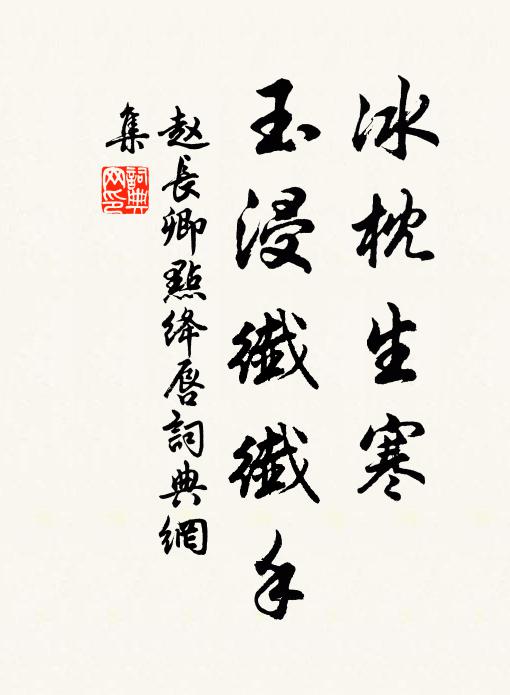 冰枕生寒
玉浸纖纖手
赵長卿點绛唇詞典網
集
詞典網印